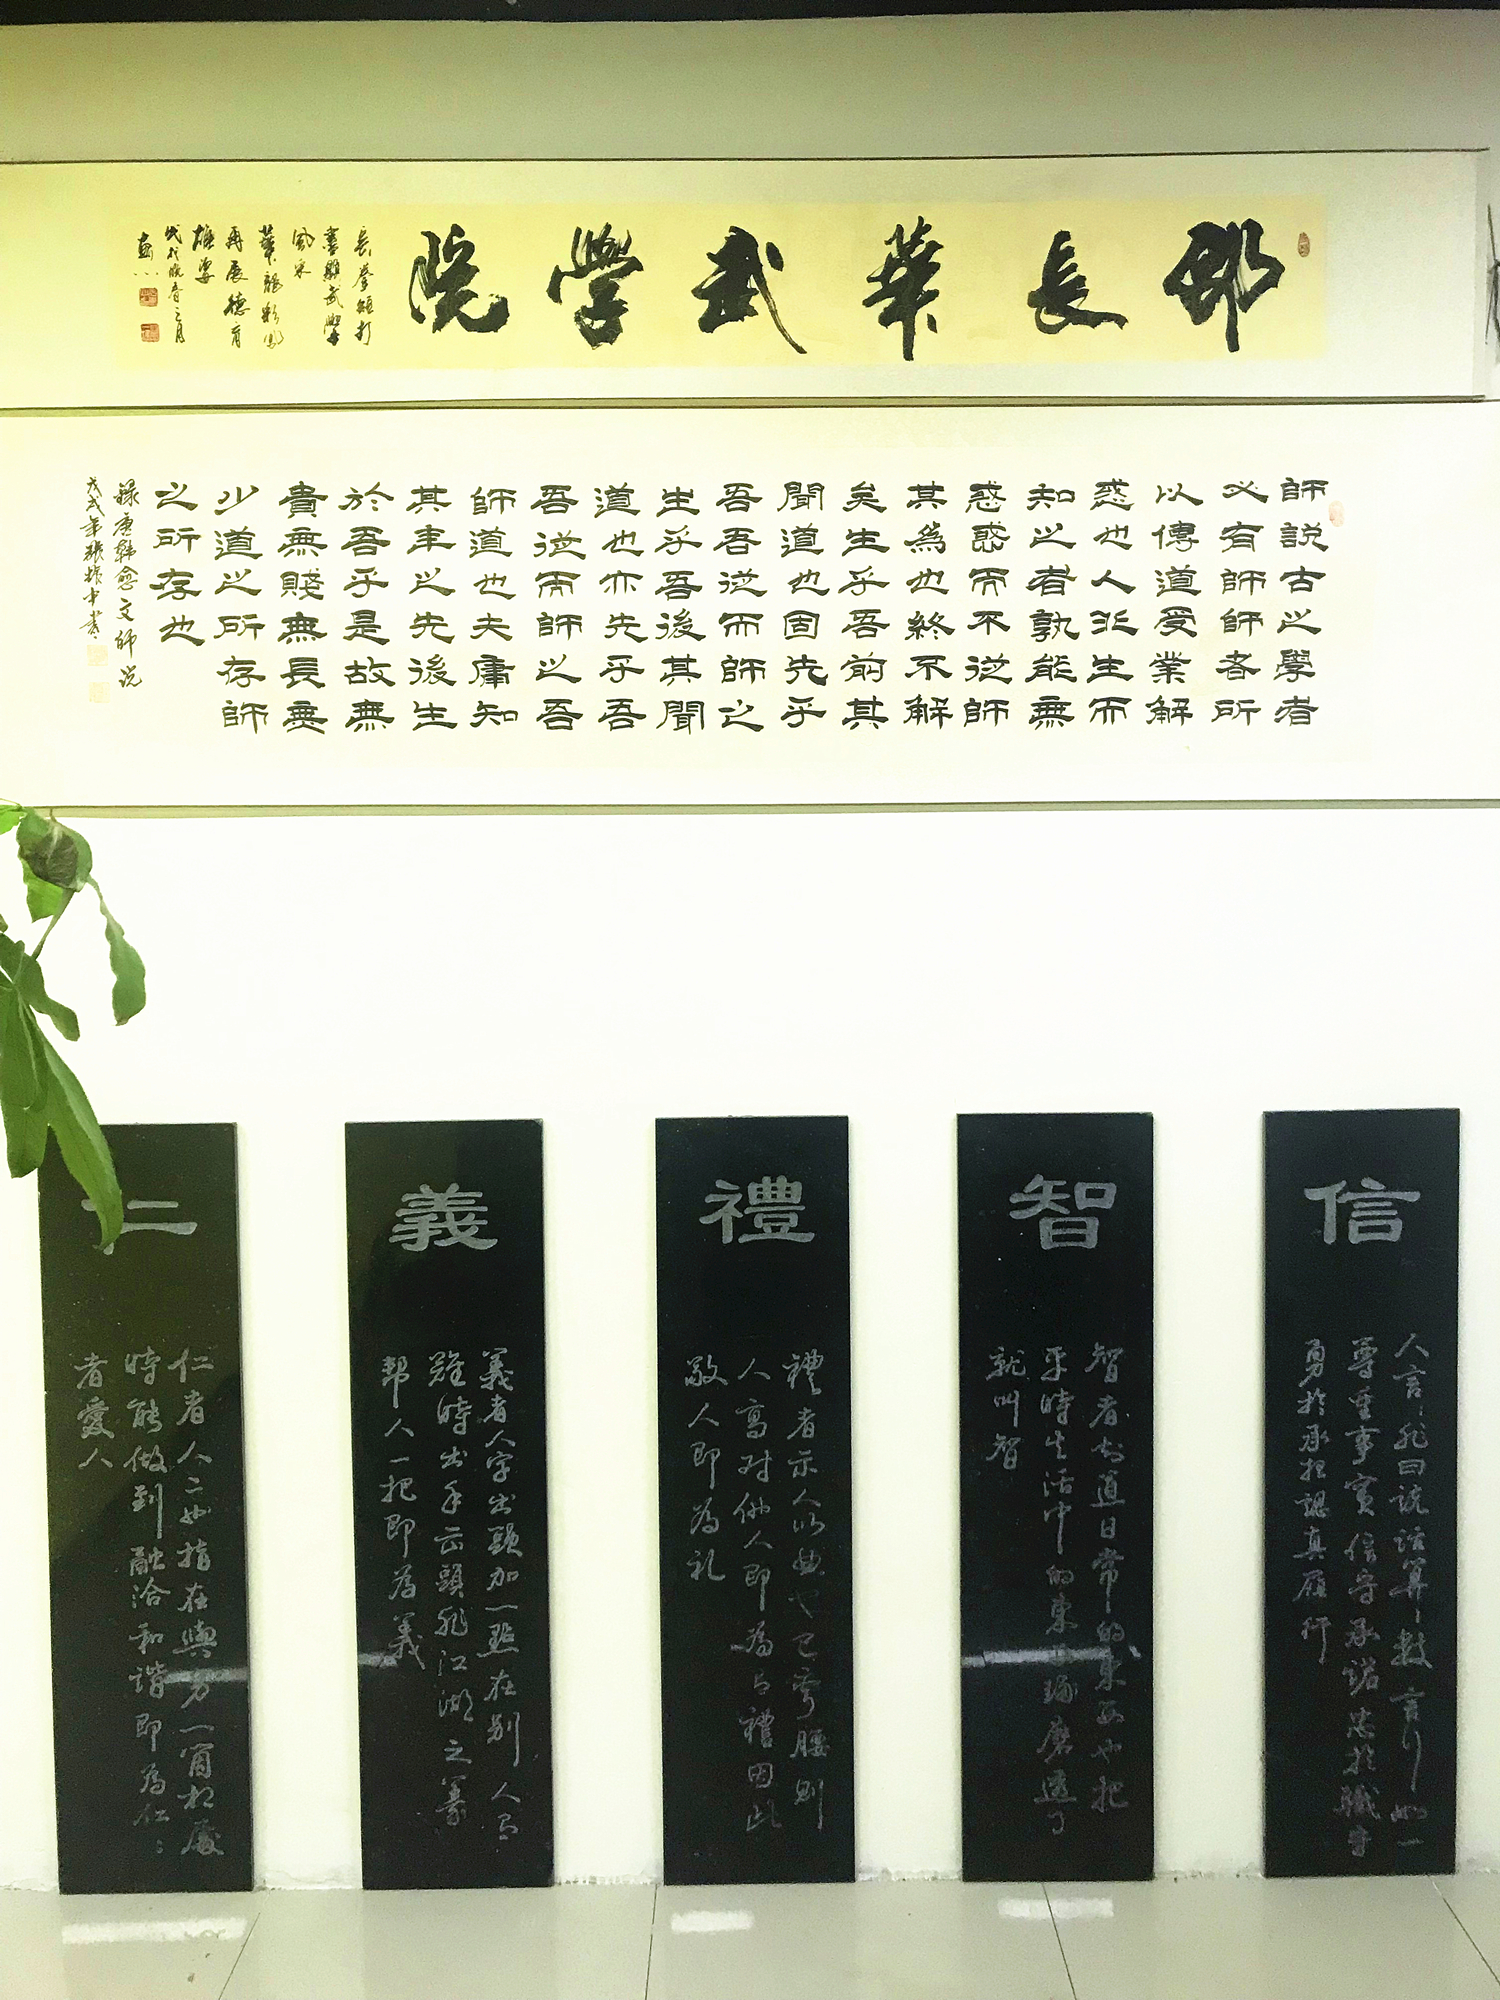 邵長華武學院
長拳短打
書顯武學
風采
華龍彩鳳
再展德育
雄姿
戊戌晚春之月
師說古之學者
必有師師者所
以傳道受業解
惑也人非生而
知之者孰能無
惑惑而不從師
其為也終不解
矣生乎吾前其
聞道也固先乎
吾吾從而師之
生乎吾後其聞
道也亦先乎吾
吾從而師之吾
師道也夫庸知
其年之先後生
於吾乎是故無
貴無賤無長無
少道之所存師
之所存也
錄唐韓愈文師说
戊戌年張振中書
信
人言非曰説話算數言行如一
尊重事實信守承諾忠於職守
勇於承担認真履行
智
智者知道日常的東西也把
平時生活中的東西琢磨透了
就叫智
禮
禮者示人以曲也己弯腰則
人高对他人即為有禮因此
敬人即為礼
義
義者人字出頭加一點在别人有
難時出手出頭非江湖之義
帮人一把即為義
仁
仁者人二也指在與另一箇相處
時能做到融洽和谐即為仁仁
者愛人